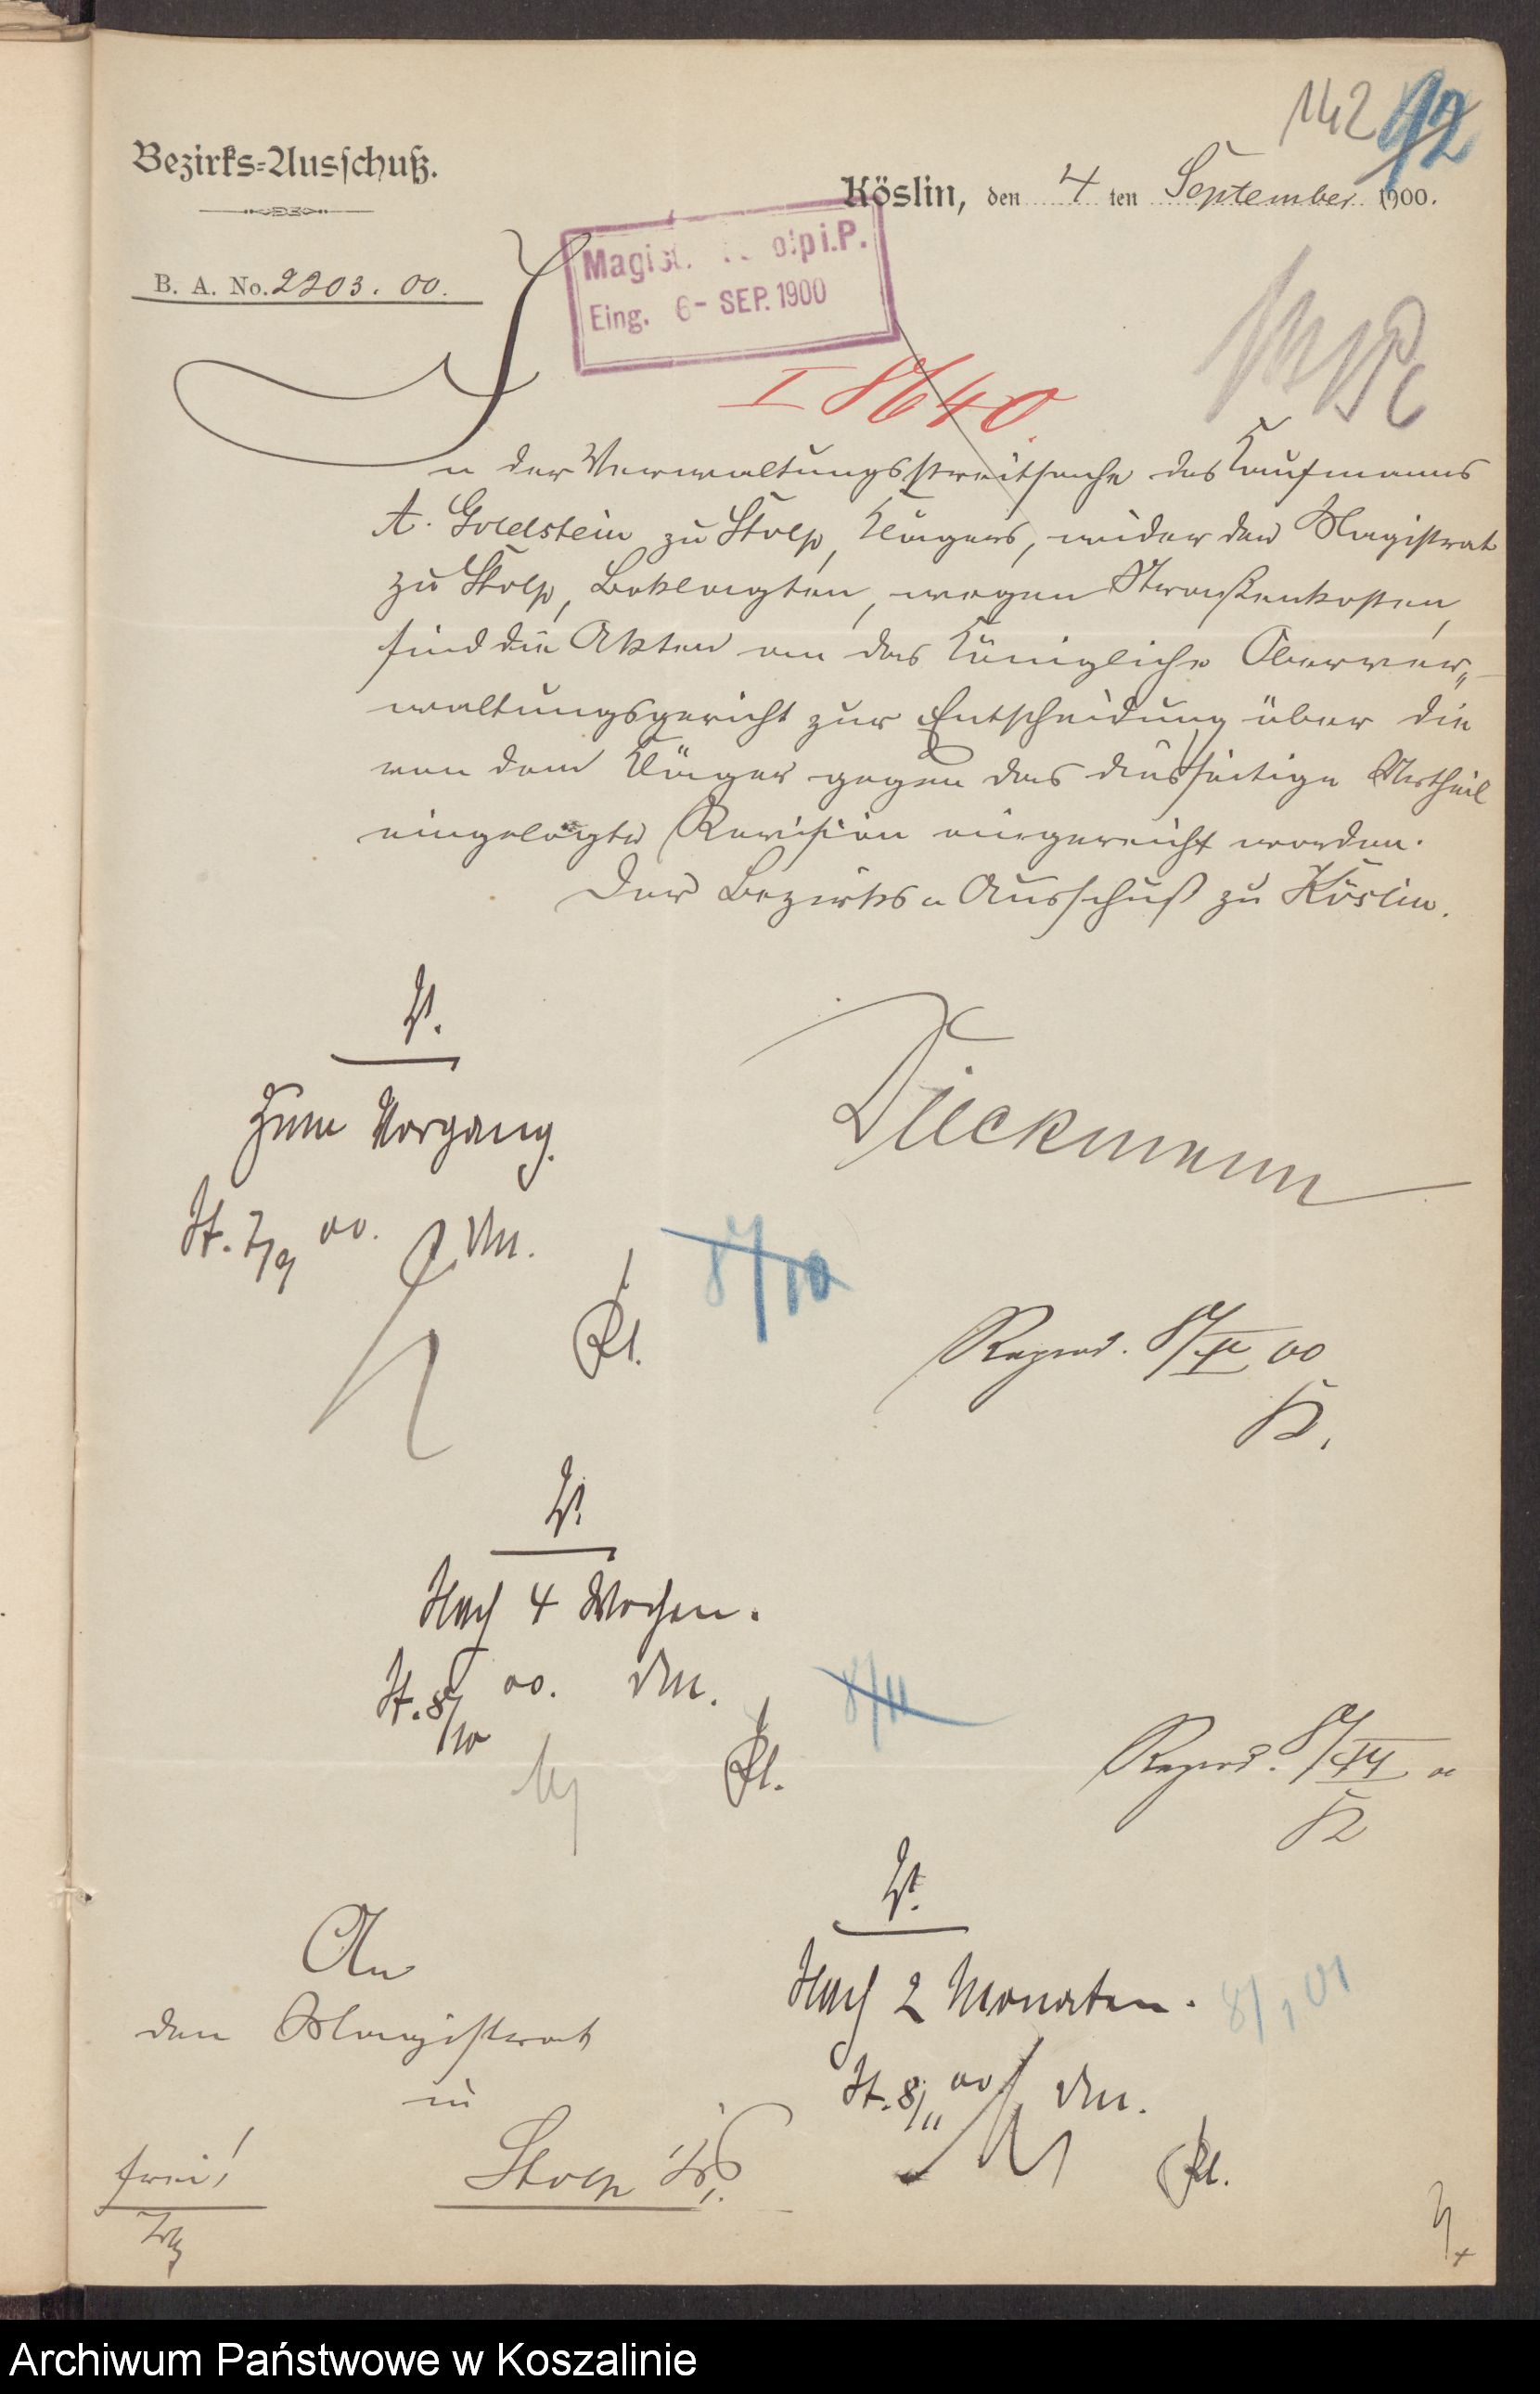 142 92
Bezirks-Ausschuß.
Köslin, den 4 ten September 1900.
B. A. No. 2203. 00.
Magist. olp i. P.
Eing. 6- SEP. 1900
I 8640.
In der Verwaltungsstreitsache des Kaufmanns
A. Goldstein zu Stolp, Klägers, wider den Magistrat
zu Stolp, Beklagten, wegen Straßenkosten,
sind die Akten an das Königliche Oberver-
waltungsgericht zur Entscheidung über die
von dem Kläger gegen das diesseitige Urtheil
eingelegte Revision eingereicht worden.
Der Bezirks-Ausschuß zu Köslin.
Dieckmann
V.
Zum Vorgang.
St. 7/9 00. DM.
8/10
Reprod. 8/X 00
V.
Nach 4 Wochen.
St. 8/10 00. DM.
8/11
Reprod. 8/XI
V.
Nach 2 Monaten.
8/1 01
St. 8/11 00 DM.
An
den Magistrat
in
Stolp i/P.
frei!